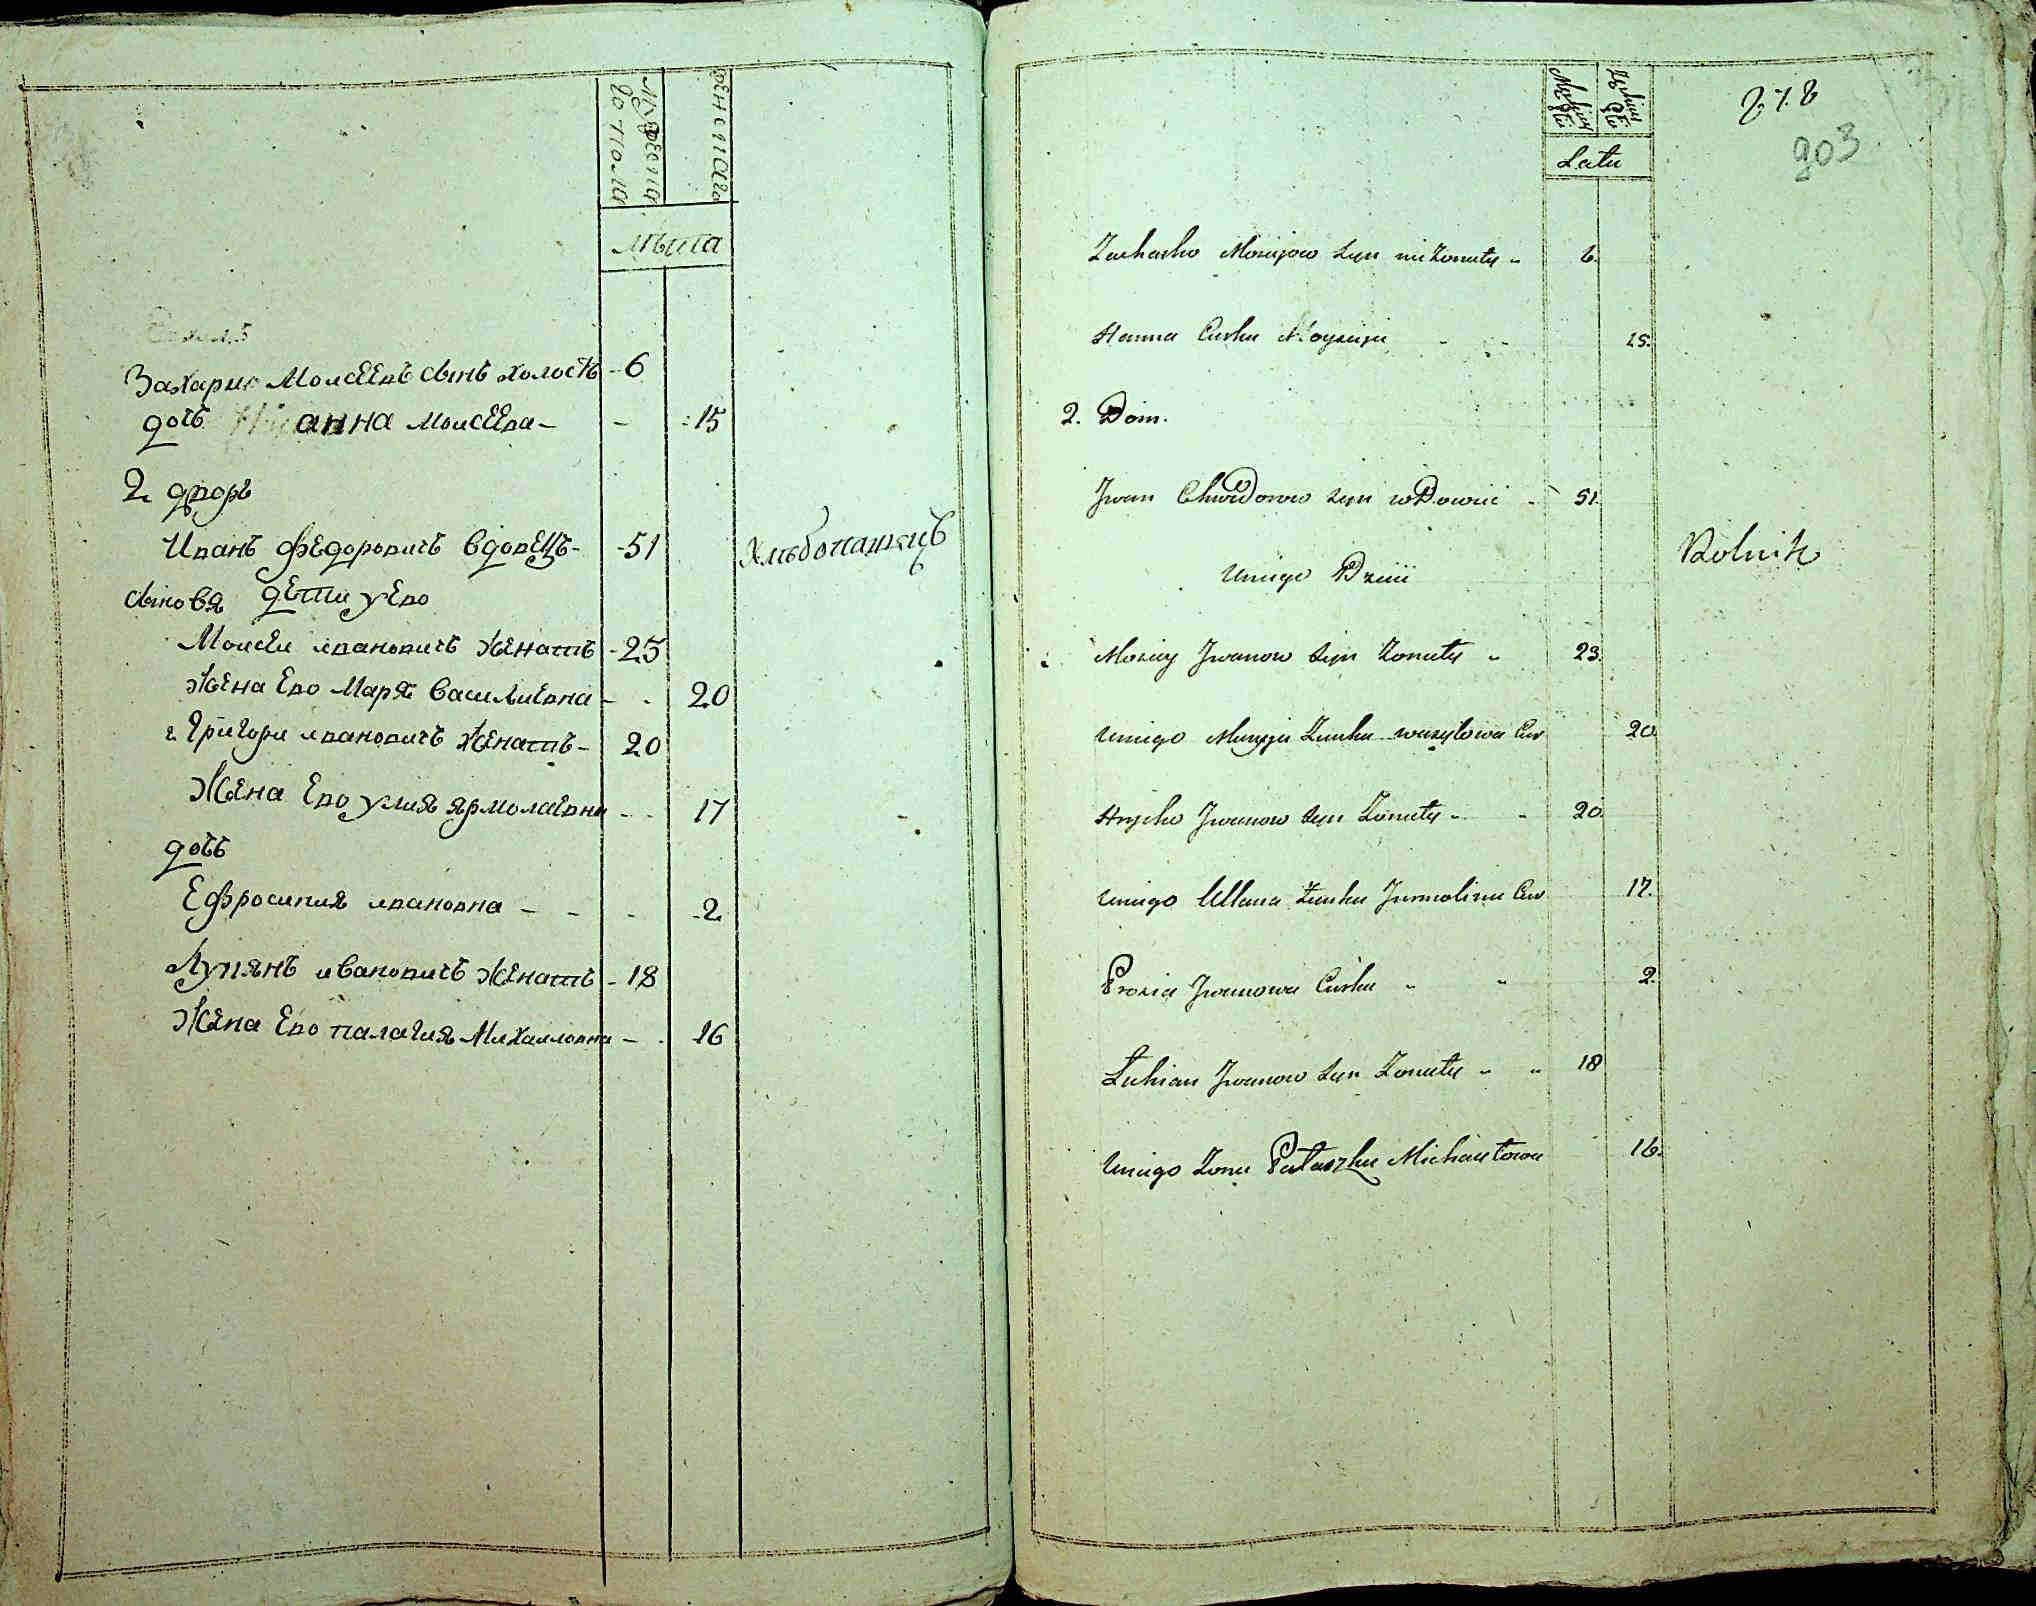 Мужеска
го пола
женска[го]
Лѣта
Захарис Моисеевъ сынъ холостъ - 6
дочь анна Моисеева - - - 15
2 дворъ
Иванъ Федоровичь вдовецъ - 51 Хлебопашецъ
сыновя дети у Ево
Моисеи ивановичь женатъ - 25
Жена Ево Маря василиевна - - 20
2 Григори ивановичь женатъ - 20
Жена Ево улия ярмолаевна - - 17
дочь
Ефросиния ивановна - - - 2
Лукянъ ивановичь женатъ - 18
Жена Ево палагия Михаиловна - . 16
Męskiey
Płci
Żeńskiey
Płci
Latu
278
203
Zacharko Mosiejow syn nieżonaty " 6.
Hanna Curka Moysieja - - 15.
2. Dom.
Jwan Chwedorow syn wdowiec - 51.
Rolnik
Uniego Dzieci
Mosiey Jwanow syn Żonaty " 23.
Uniego Maryja Żonka wasylowa Cur 20
Hryćko Jwanow syn Żonaty - " 20.
Uniego Ullana Żonka Jarmolina Cur 17.
Prosia Jwanowa Curka " " 2.
Łukian Jwanow syn Żonaty " " 18
Uniego Żona Pałaszka Michayłowa 16.